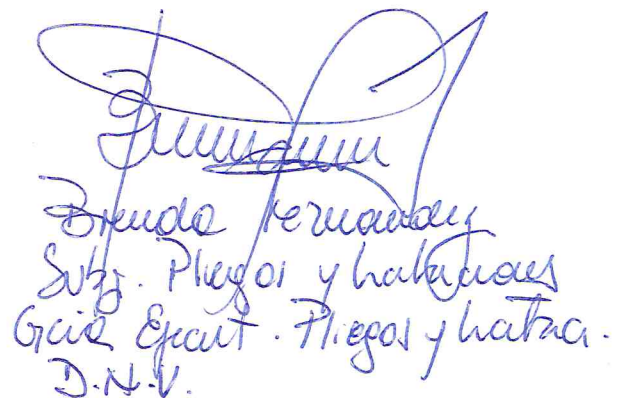 Brenda Fernandez
Subg. Pliegos y Licitaciones
Gcia Ejecut. Pliegos y Licitac.
D.N.V.